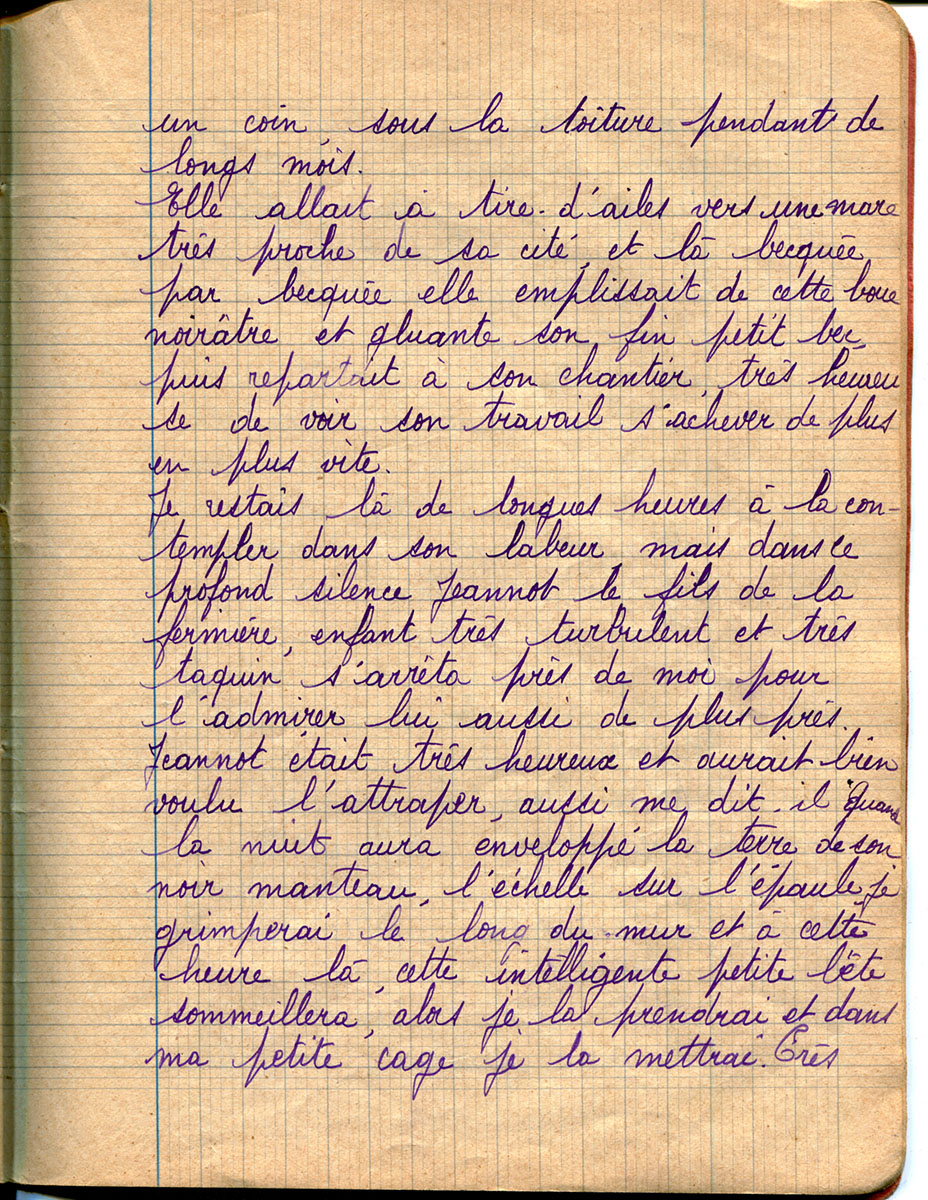 un coin, sous la toiture pendants de
longs mois.
Elle allait à tire-d'ailes vers une mare
très proche de sa cité, et là becquée
par becquée elle emplissait de cette boue
noirâtre et gluante son fin petit bec,
puis repartait à son chantier, très heureu
se de voir son travail s'achever de plus
en plus vite.
Je restais là de longues heures à la con-
templer dans son labeur, mais dans ce
profond silence Jeannot le fils de la
fermière, enfant très turbulent et très
taquin, s'arrêta près de moi pour
l'admirer lui aussi de plus près.
Jeannot était très heureux et aurait bien
voulu l'attraper, aussi me dit-il "Quand
la nuit aura enveloppé la terre de son
noir manteau, l'échelle sur l'épaule, je
grimperai le long du mur et à cette
heure là, cette intelligente petite bête
sommeillera, alors je la prendrai et dans
ma petite cage je la mettrai. Très